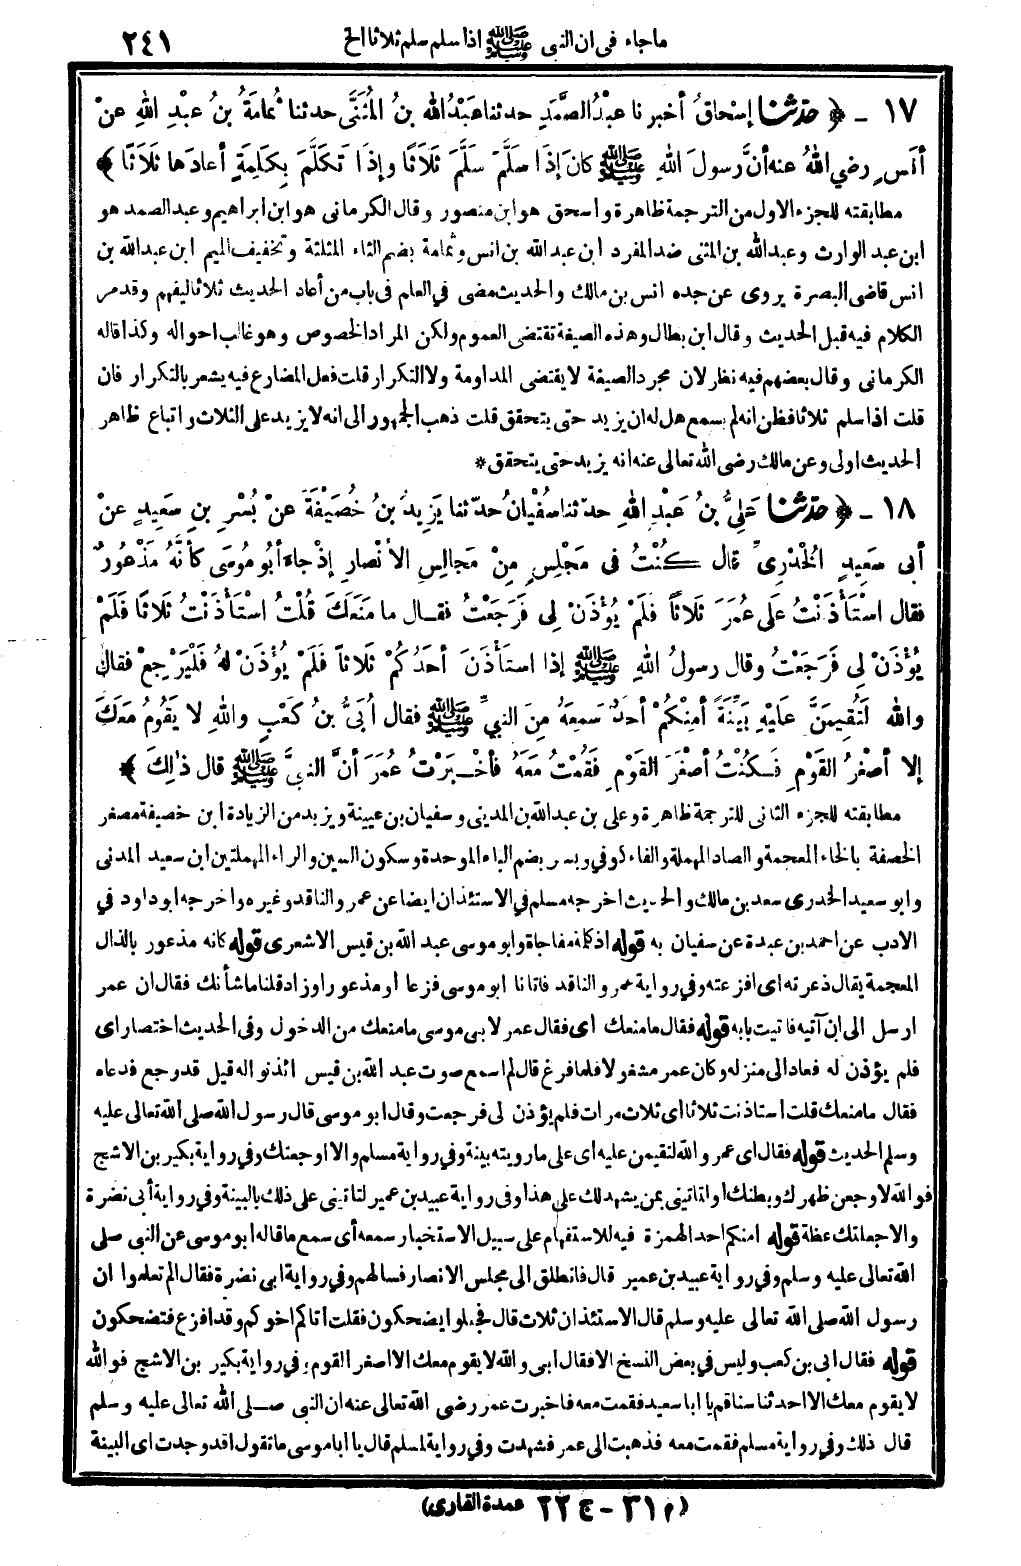 ما جاء في ان النبي ﷺ اذا سلم سلم ثلاثا الخ ٢٤١
١٧ - ﴿ حدثنا إسْحاقُ أخبرنا عبْدُ الصَّمَدِ حدثنا عَبْدُ اللهِ بنُ الْمُثَنَّى حدثنا ثُمامَةُ بنُ عبْدِ اللهِ عنْ
أنَسٍ رضي اللهُ عنه أنَّ رسولَ اللهِ ﷺ كانَ إذَا سلَّمَ سلَّمَ ثَلاَثًا وإذَا تَكلَّمَ بِكَلِمَةٍ أعادَها ثَلاَثًا ﴾
مطابقته للجزء الاول من الترجمة ظاهرة واسحق هو ابن منصور وقال الكرماني هو ابن ابراهيم وعبد الصمد هو
ابن عبد الوارث وعبد الله بن المثنى ضد المفرد ابن عبد الله بن انس وثمامة بضم الثاء المثلثة وتخفيف الميم ابن عبد الله بن
انس قاضي البصرة يروى عن جده انس بن مالك والحديث مضى في العلم في باب من أعاد الحديث ثلاثا ليفهم وقد مر
الكلام فيه قبل الحديث وقال ابن بطال وهذه الصيغة تقتضى العموم ولكن المراد الخصوص وهو غالب احواله وكذا قاله
الكرماني وقال بعضهم فيه نظر لان مجرد الصيغة لا يقتضى المداومة ولا التكرار قلت فعل المضارع فيه يشعر بالتكرار فان
قلت اذا سلم ثلاثا فظن انه لم يسمع هل له ان يزيد حتى يتحقق قلت ذهب الجمهور الى انه لا يزيد على الثلاث واتباع ظاهر
الحديث اولى وعن مالك رضى الله تعالى عنه انه يزيد حتى يتحقق *
١٨ - ﴿ حدثنا عَلِيُّ بنُ عَبْدِ اللهِ حدّثنا سُفْيانُ حدّثنا يَزِيدُ بنُ خُصَيْفَةَ عنْ بُسْرِ بنِ سَعِيدٍ عنْ
أبى سَعِيدٍ الخُدْرِىِّ قال كُنْتُ في مَجْلِسٍ مِنْ مَجالِسِ الأنْصارِ إذْ جاءَ أبُو مُوسَى كأنَّهُ مَذْعُورٌ
فقال اسْتَأذَنْتُ عَلى عُمَرَ ثَلاثًا فَلَمْ يُؤْذَنْ لِى فَرَجَعْتُ فقال ما مَنَعَكَ قُلْتُ اسْتَأذَنْتُ ثَلاثًا فَلَمْ
يُؤْذَنْ لِى فَرَجَعْتُ وقال رسولُ اللهِ ﷺ إذا استَأذَنَ أحَدُكُمْ ثَلاثًا فَلَمْ يُؤْذَنْ لهُ فَلْيَرْجِعْ فقال
والله لَتُقِيمَنَّ عليْهِ بَيِّنَةً أمِنْكُمْ أحَدٌ سَمِعَهُ مِنَ النبيِّ ﷺ فقال أُبَىُّ بنُ كَعْبٍ واللهِ لا يَقُومُ مَعَكَ
إلا أصْغَرُ القَوْمِ فَكُنْتُ أصْغَرَ القَوْمِ فَقُمْتُ مَعَهُ فأخْبَرْتُ عُمَرَ أنَّ النبيَّ ﷺ قال ذٰلِكَ ﴾
مطابقته للجزء الثانى للترجمة ظاهرة وعلى بن عبد الله بن المدينى وسفيان بن عيينة ويزيد من الزيادة ابن خصيفة مصغر
الخصفة بالخاء المعجمة والصاد المهملة والفاء كوفي وبسر بضم الباء الموحدة وسكون السين والراء المهملتين ابن سعيد المدنى
وابو سعيد الخدرى سعد بن مالك والحديث اخرجه مسلم في الاستئذان ايضا عن عمرو الناقد وغيره واخرجه ابو داود في
الادب عن احمد بن عبدة عن سفيان به قوله اذ كلمة مفاجاة وابو موسى عبد الله بن قيس الاشعرى قوله كانه مذعور بالذال
المعجمة يقال ذعرته اى افزعته وفي رواية عمرو الناقد فاتانا ابو موسى فزعا او مذعورا وزاد قلنا ما شأنك فقال ان عمر
ارسل الى ان آتيه فاتيت بابه قوله فقال ما منعك اى فقال عمر لابي موسى ما منعك من الدخول وفى الحديث اختصار اى
فلم يؤذن له فعاد الى منزله وكان عمر مشغولا فلما فرغ قال لم اسمع صوت عبد الله بن قيس ائذنوا له قيل قد رجع فدعاه
فقال ما منعك قلت استاذنت ثلاثا اى ثلاث مرات فلم يؤذن لى فرجعت وقال ابو موسى قال رسول الله صلى الله تعالى عليه
وسلم الحديث قوله فقال اى عمر والله لتقيمن عليه اى على ما رويته بينة وفي رواية مسلم والا اوجعتك وفي رواية بكير بن الاشج
فوالله لاوجعن ظهرك وبطنك او لتاتينى بمن يشهد لك على هذا وفى رواية عبيد بن عمير لتاتينى على ذلك بالبينة وفي رواية أبى نضرة
والا جعلتك عظة قوله امنكم احد الهمزة فيه للاستفهام على سبيل الاستخبار سمعه أى سمع ما قاله ابو موسى عن النبى صلى
الله تعالى عليه وسلم وفي رواية عبيد بن عمير قال فانطلق الى مجلس الانصار فسالهم وفي رواية ابى نضرة فقال الم تعلموا ان
رسول الله صلى الله تعالى عليه وسلم قال الاستئذان ثلاث قال فجعلوا يضحكون فقلت اتاكم اخوكم وقد افزع فتضحكون
قوله فقال ابى بن كعب وليس في بعض النسخ الا فقال ابى والله لا يقوم معك الا اصغر القوم وفي رواية بكير بن الاشج فوالله
لا يقوم معك الا احدثنا سنا قم يا ابا سعيد فقمت معه فاخبرت عمر رضى الله تعالى عنه ان النبى صلى الله تعالى عليه وسلم
قال ذلك وفي رواية مسلم فقمت معه فذهبت الى عمر فشهدت وفي رواية لمسلم قال يا ابا موسى ما تقول اقد وجدت اى البينة
(م ٣١ - ج ٢٢ عمدة القارى)